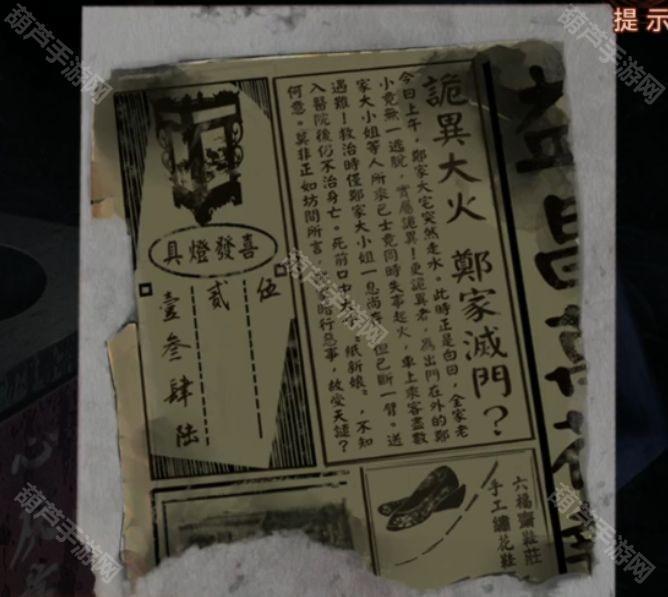 提示
益昌
詭異大火 鄭家滅門？
今日上午，鄭家大宅突然走水。此時正是白日，全家老
小竟無一逃脫，實屬詭異！更詭異者，為出門在外的鄭
家大小姐等人所乘巴士竟同時失事起火，車上乘客盡數
遇難！救治時僅鄭家大小姐一息尚存，但已斷一臂。送
入醫院後仍不治身亡。死前口中大 紙新娘，不知
何意。莫非正如坊間所言， 暗行惡事，故受天譴？
喜發燈具
伍
貳
壹叁肆陸
六福齋鞋莊
手工繡花鞋
葫芦手游网
葫芦手游网
葫芦手游网
葫芦手游网
葫芦手游网